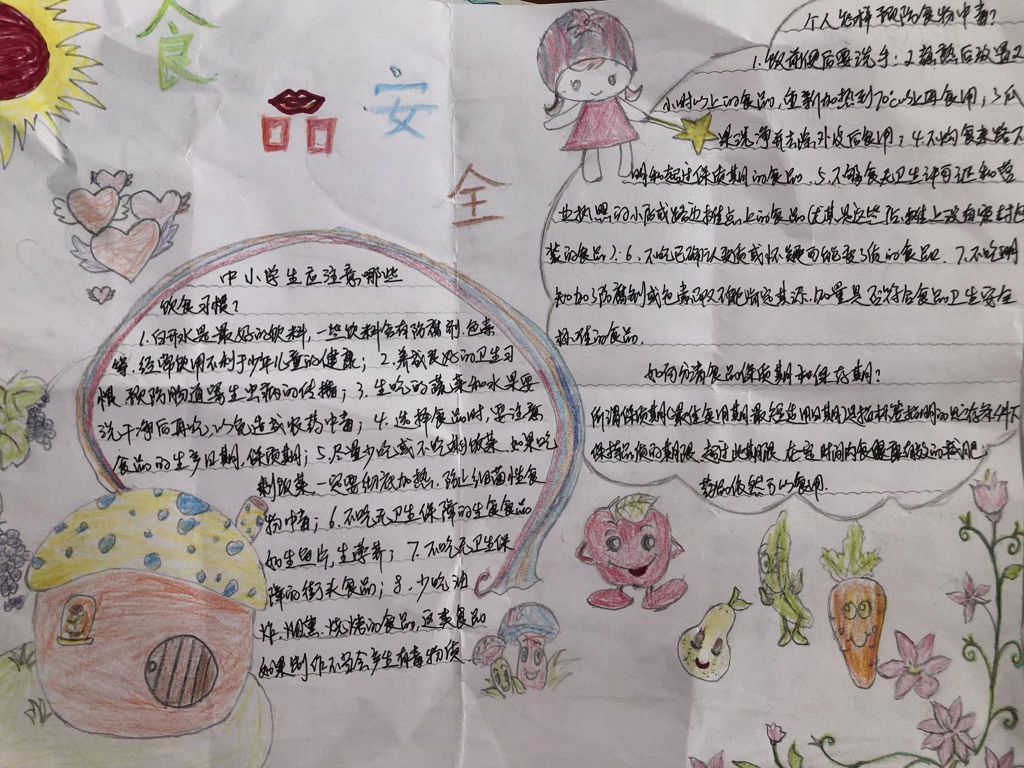 食品安全
中小学生应注意哪些
饮食习惯?
1.白开水是最好的饮料,一些饮料含有防腐剂.色素
等.经常饮用不利于少年儿童的健康;2.养成良好的卫生习
惯 预防肠道寄生虫病的传播;3.生吃的蔬菜和水果要
洗干净后再吃,以免造成农药中毒;4.选择食品时,要注意
食品的生产日期,保质期;5.尽量少吃或不吃剩饭菜.如果吃
剩饭菜,一定要彻底加热,防止细菌性食
物中毒;6.不吃无卫生保障的生食食品
如生鱼片,生荸荠;7.不吃无卫生保
障的街头食品;8.少吃油
炸.烟熏.烧烤的食品,这类食品
如果制作不当会产生有毒物质.
个人怎样预防食物中毒?
1.饮前便后要洗手;2.蒸熟后放置2
小时以上的食品,重新加热到70℃以上再食用;3.瓜
果洗净并去除外皮后食用;4.不购食来路不
明和超过保质期的食品.5.不够食无卫生许可证和营
业执照的小店或路边摊点上的食品(尤其是这些店.摊上没有密封包
装的食品);6.不吃已确认变质或怀疑可能变了质的食品.7.不吃明
知加了防腐剂或色素而又不能确定其添加量是否符合食品卫生安全
标准的食品.
如何分清食品保质期和保存期?
所谓保质期(最佳食用期.最短适用日期)是指标签指明的贮存条件下
保持品质的期限.超过此期限.在一定时间内食
药品依然可以食用.